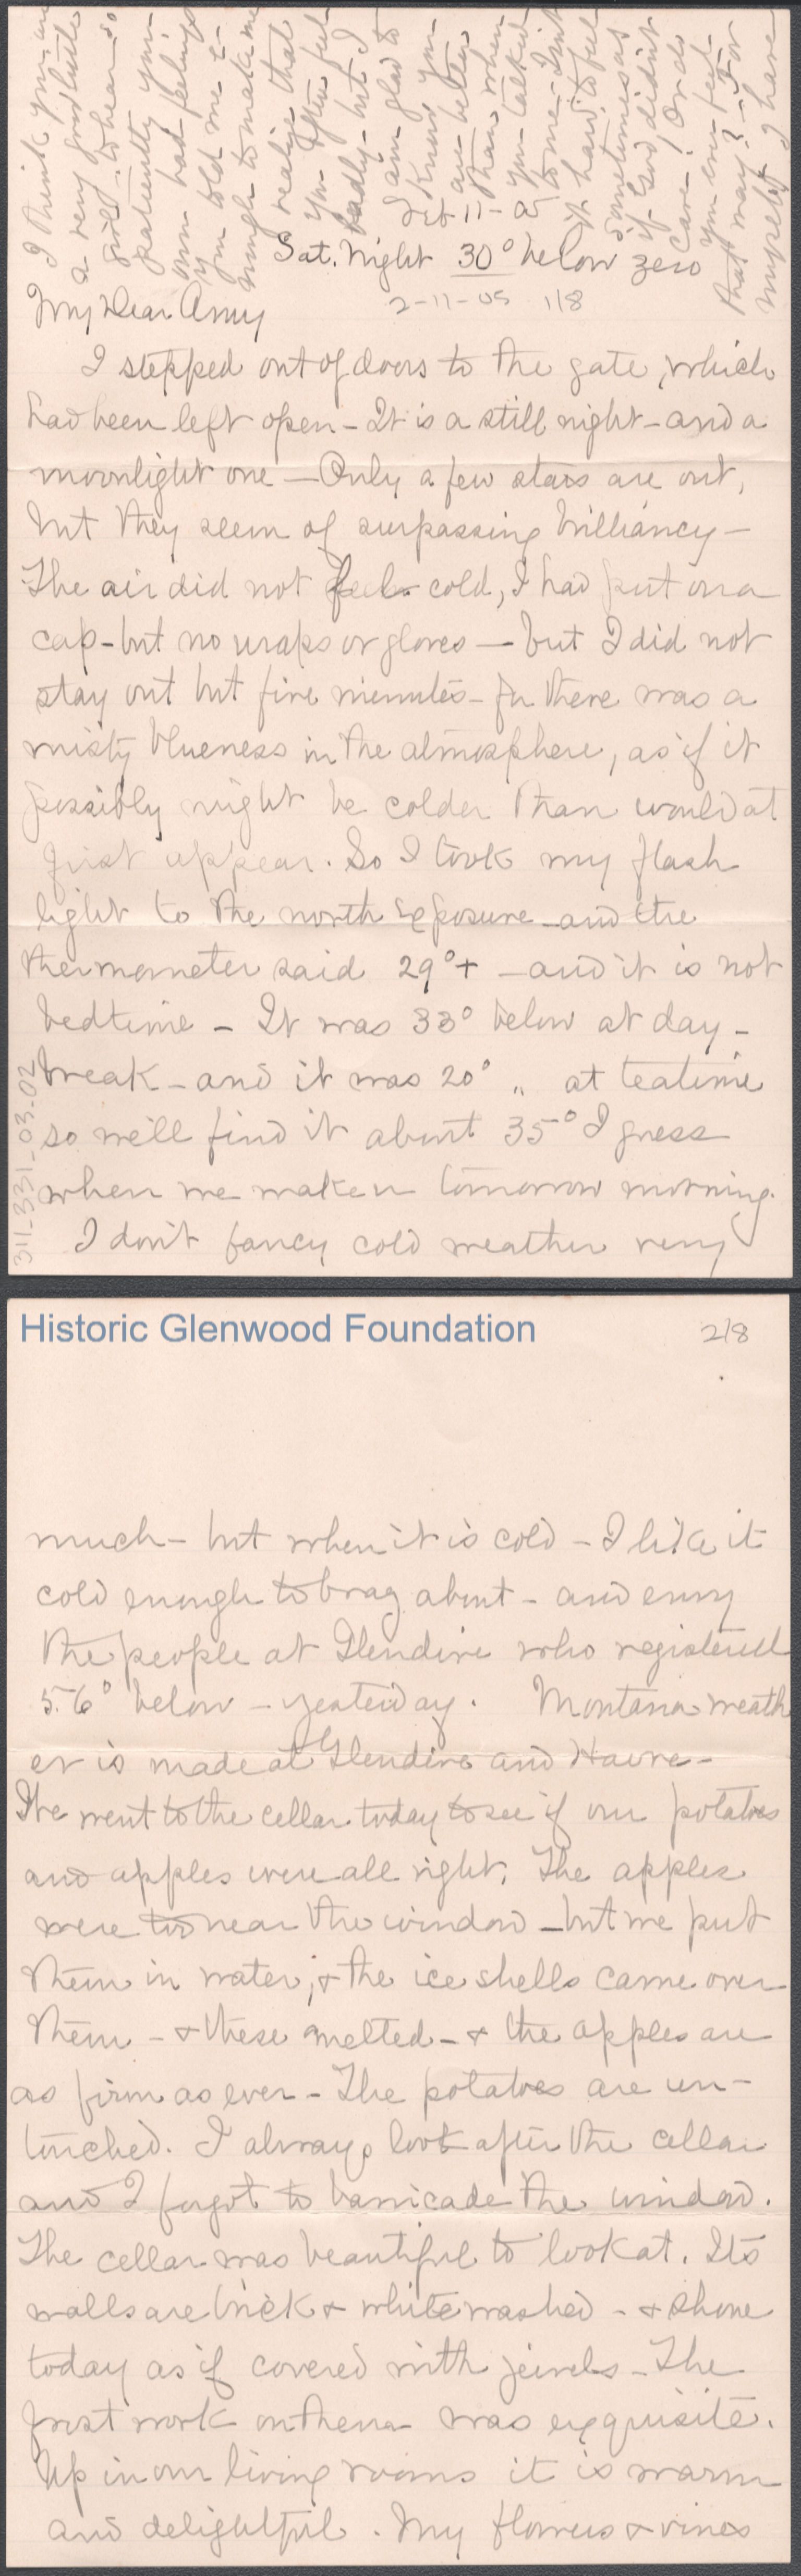 I think you are
a very good little
girl - to hear so
patiently your
own bad feelings
you told me e-
nough to make me
realize that
you often feel
badly - but I
am glad to
know you
are better
than when
you talked
to me - Isn't
it hard to feel
sometimes as
if God didn't
care! Or do
you ever feel
that way? - For
myself I have
Feb - 11 - 05
Sat. Night 30° below zero
2-11-05 1/8
My Dear Amy
I stepped out of doors to the gate, which
had been left open - It is a still night - and a
moonlight one - Only a few stars are out,
but they seem of surpassing brilliancy -
The air did not feel cold, I had put on a
cap - but no wraps or gloves - but I did not
stay out but five minutes - for there was a
misty blueness in the atmosphere, as if it
possibly might be colder than would at
first appear. So I took my flash
light to the north exposure - and the
thermometer said 29°+ - and it is not
bedtime - It was 33° below at day -
break - and it was 20° " at teatime
so we'll find it about 35° I guess
when we waken tomorrow morning.
I don't fancy cold weather very
311-331-03-02
Historic Glenwood Foundation
2/8
much - but when it is cold - I like it
cold enough to brag about - and envy
the people at Glendive who registered
56° below - yesterday. Montana weath
er is made at Glendive and Havre -
We went to the cellar today to see if our potatoes
and apples were all right. The apples
were too near the window - but we put
them in water, & the ice shells came over
them - & these melted - & the apples are
as firm as ever - The potatoes are un -
touched. I always look after the cellar
and I forgot to barricade the window.
The cellar was beautiful to look at. Its
walls are brick & whitewashed - & shone
today as if covered with jewels - The
frost work on them was exquisite.
Up in our living rooms it is warm
and delightful. My flowers & vines